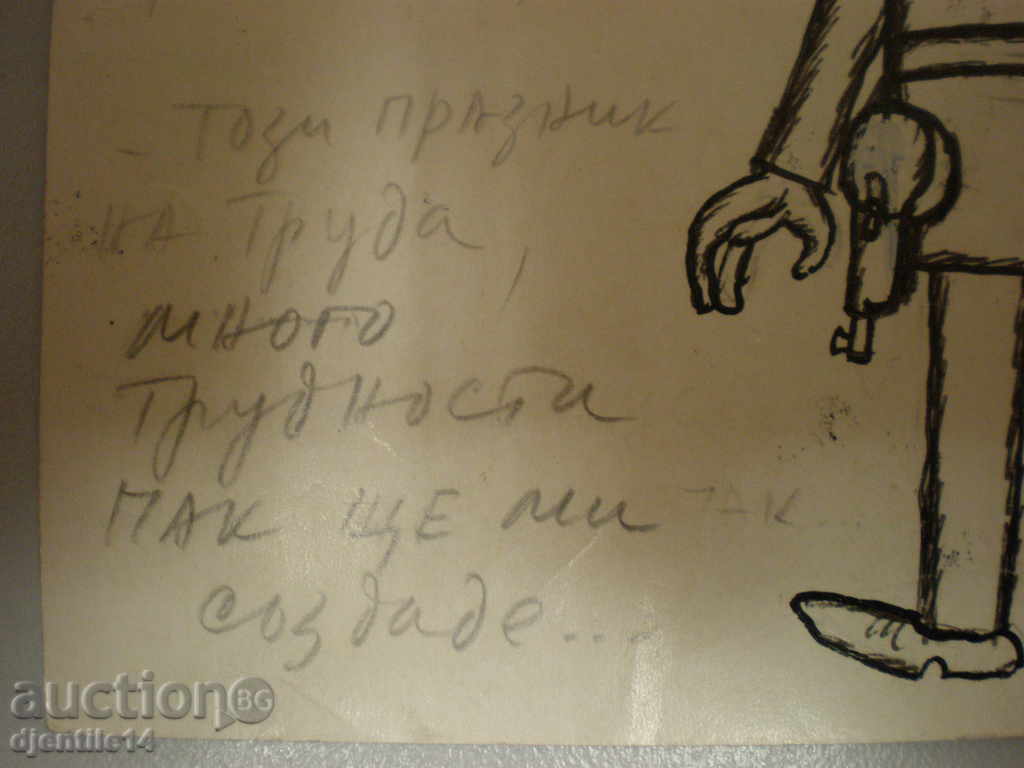 - Този празник
на труда,
много
трудности
пак ще ми пак...
създаде...
auctionBG
djentile14